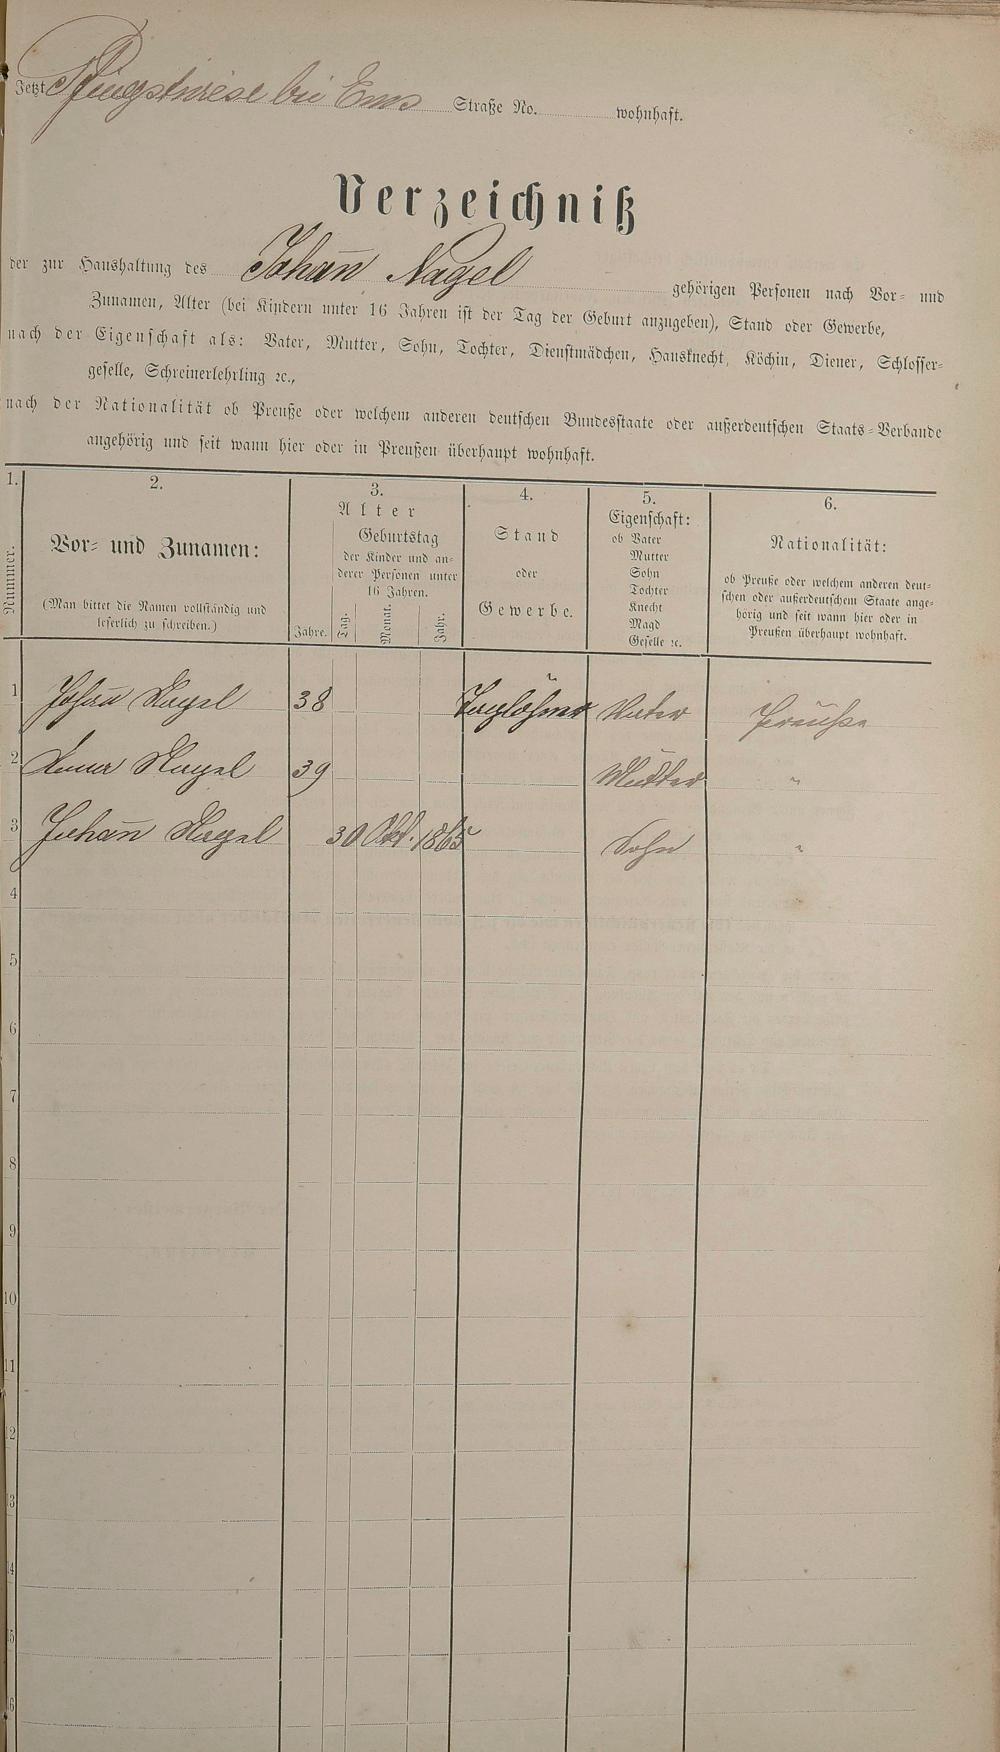 Jetzt Pfingstwiese bei Ems Straße No. wohnhaft.
Verzeichniß
der zur Haushaltung des Johan̅ Nagel gehörigen Personen nach Vor- und
Zunamen, Alter (bei Kindern unter 16 Jahren ist der Tag der Geburt anzugeben), Stand oder Gewerbe,
nach der Eigenschaft als: Vater, Mutter, Sohn, Tochter, Dienstmädchen, Hausknecht, Köchin, Diener, Schlosser-
geselle, Schreinerlehrling ꝛc.,
nach der Nationalität ob Preuße oder welchem anderen deutschen Bundesstaate oder außerdeutschen Staats-Verbande
angehörig und seit wann hier oder in Preußen überhaupt wohnhaft.
1. 2. 3. 4. 5. 6.
Nummer.
Vor- und Zunamen:
(Man bittet die Namen vollständig und
leserlich zu schreiben.)
Alter
Jahre.
Geburtstag
der Kinder und an-
derer Personen unter
16 Jahren.
Tag. Monat. Jahr.
Stand
oder
Gewerbe.
Eigenschaft:
ob Vater
Mutter
Sohn
Tochter
Knecht
Magd
Geselle ꝛc.
Nationalität:
ob Preuße oder welchem anderen deut-
schen oder außerdeutschem Staate ange-
hörig und seit wann hier oder in
Preußen überhaupt wohnhaft.
1 Johan̅ Nagel 38 Taglöhner Vater Preuße
2 Nagel 39 Mutter "
3 Johan̅ Nagel 30 Okt. 1865 Sohn "
4
5
6
7
8
9
10
11
12
13
14
15
16